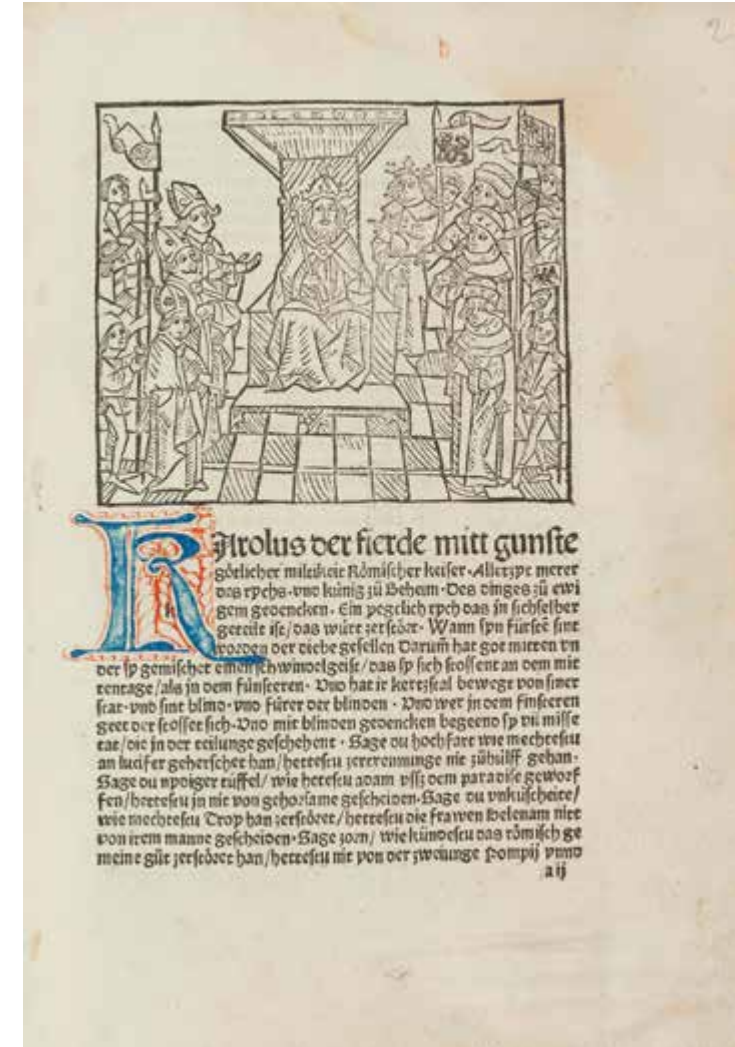 KArolus der fierde mitt gunste
götlicher miltikeit Römischer keiser. Allerzyt merer
das rychs. vnd künig zů Beheim. Des dinges zů ewi
gem gedencken. Ein yegclich rych das in sichselber
geteilt ist/das würt zerstöret. Wann syn fürstē sint
worden der diebe gesellen Darum̄ hat got mitten vn
der sy gemischet einen schwindelgeist/das sy sich stossent an dem mit
tentage/als in dem fünsteren. Vnd hat ir kertzstal bewegt von siner
stat. vnd sint blind. vnd fürer der blinden. Vnd wer in dem finsteren
geet der stosset sich. Vnd mit blinden gedencken begeend sy vil misse
tat/die in der teilunge geschehent. Sage du hochfart wie mechtestu
an lucifer geherschet han/hettestu zertrennunge nit zůhülff gehan.
Sage du nydiger tüffel/wie hetestu adam vsz dem paradise geworf
fen/hettestu in nit von gehorsame gescheiden. Sage du vnkuscheite/
wie mechtestu Troy han zerstöret/hettestu die frawen Helenam nitt
von irem manne gescheiden. Sage zorn/wie kündestu das römisch ge
meine gůt zerstöret han/hettestu nit von der zweiunge Pompij vnnd
a ij